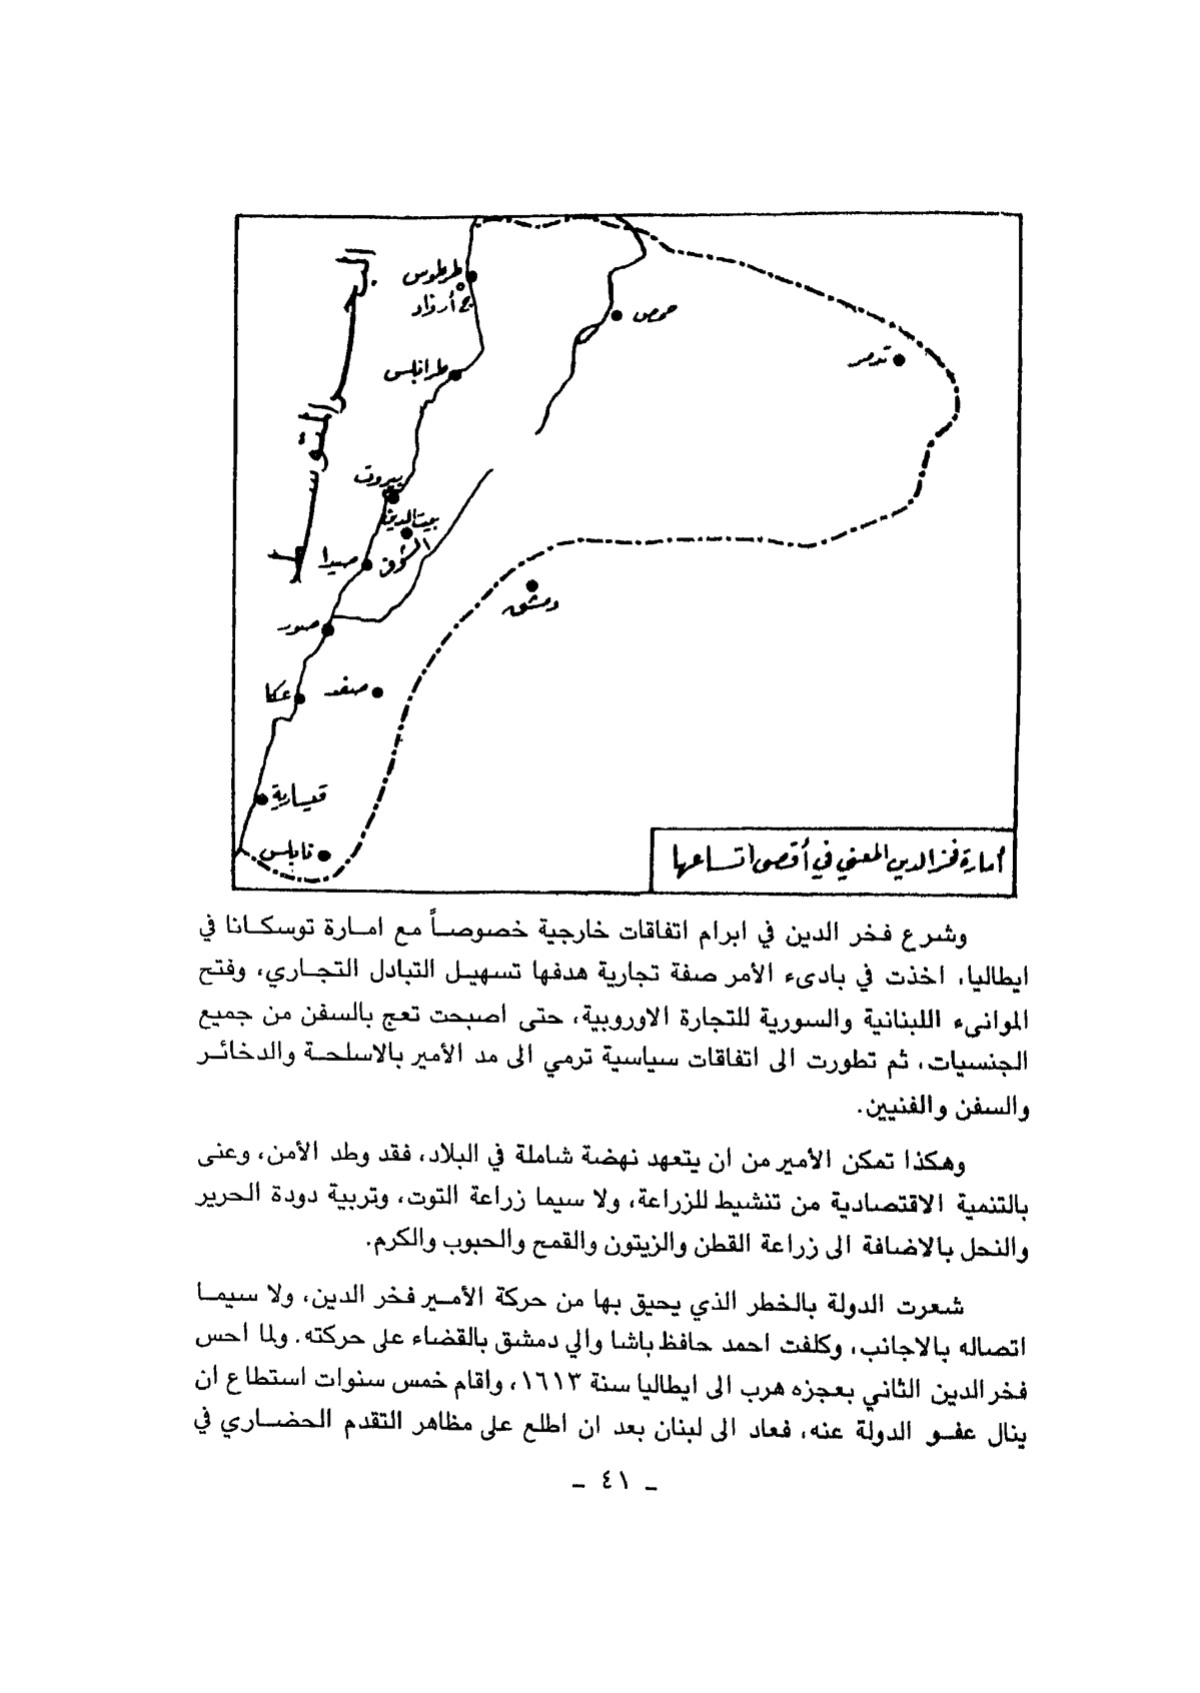 البحر المتوسط
طرطوس
ج أرواد
حمص
تدمر
طرابلس
بيروت
بيت الدين
الشوف
صيدا
دمشق
صور
صفد
عكا
قيسارية
نابلس
أمارة فخر الدين المعني في أقصى اتساعها
وشرع فخر الدين في ابرام اتفاقات خارجية خصوصاً مع امارة توسكانا في
ايطاليا، اخذت في بادىء الأمر صفة تجارية هدفها تسهيل التبادل التجاري، وفتح
الموانىء اللبنانية والسورية للتجارة الاوروبية، حتى اصبحت تعج بالسفن من جميع
الجنسيات، ثم تطورت الى اتفاقات سياسية ترمي الى مد الأمير بالاسلحة والدخائر
والسفن والفنيين.
وهكذا تمكن الأمير من ان يتعهد نهضة شاملة في البلاد، فقد وطد الأمن، وعنى
بالتنمية الاقتصادية من تنشيط للزراعة، ولا سيما زراعة التوت، وتربية دودة الحرير
والنحل بالاضافة الى زراعة القطن والزيتون والقمح والحبوب والكرم.
شعرت الدولة بالخطر الذي يحيق بها من حركة الأمير فخر الدين، ولا سيما
اتصاله بالاجانب، وكلفت احمد حافظ باشا والي دمشق بالقضاء على حركته. ولما احس
فخر الدين الثاني بعجزه هرب الى ايطاليا سنة ١٦١٣، واقام خمس سنوات استطاع ان
ينال عفو الدولة عنه، فعاد الى لبنان بعد ان اطلع على مظاهر التقدم الحضاري في
ـ ٤١ ـ